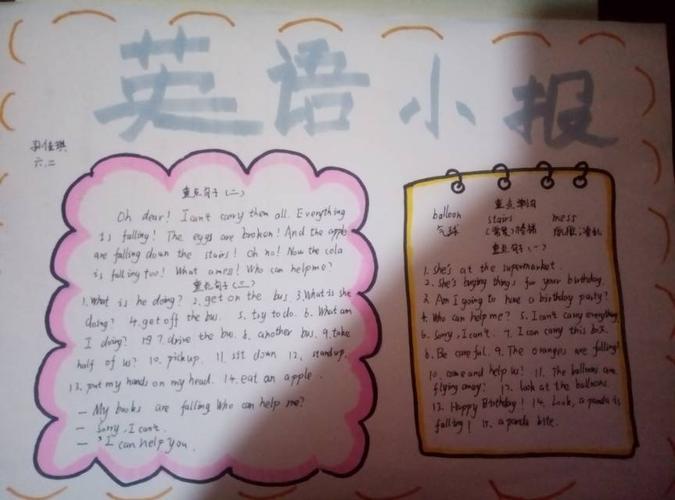 英语小报
佳琪
六.二
重点句子(二)
Oh dear! I can't carry them all. Everything
is falling! The eggs are broken! And the apples
are falling down the stairs! Oh no! Now the cola
is falling too! What a mess! Who can help me?
重点句子(三)
1. What is he doing? 2. get on the bus. 3. What is she
doing? 4. get off the bus. 5. try to do. 6. What am
I doing? 7. drive the bus. 8. another bus. 9. take
half of us? 10. pick up. 11. sit down 12. stand up.
13. put my hands on my head. 14. eat an apple.
— My books are falling Who can help me?
— Sorry, I can't.
— I can help you.
重点单词
balloon stairs mess
气球 (常复)楼梯 凌乱
重点句子(一)
1. She's at the supermarket.
2. She's buying things for your birthday.
3. Am I going to have a birthday party?
4. Who can help me? 5. I can't carry everything.
6. Sorry, I can't. 7. I can carry this box.
8. Be careful. 9. The oranges are falling!
10. come and help us! 11. The balloons are
flying away! 12. look at the balloons.
13. Happy Birthday! 14. Look, a panda is
falling! 15. a panda kite.